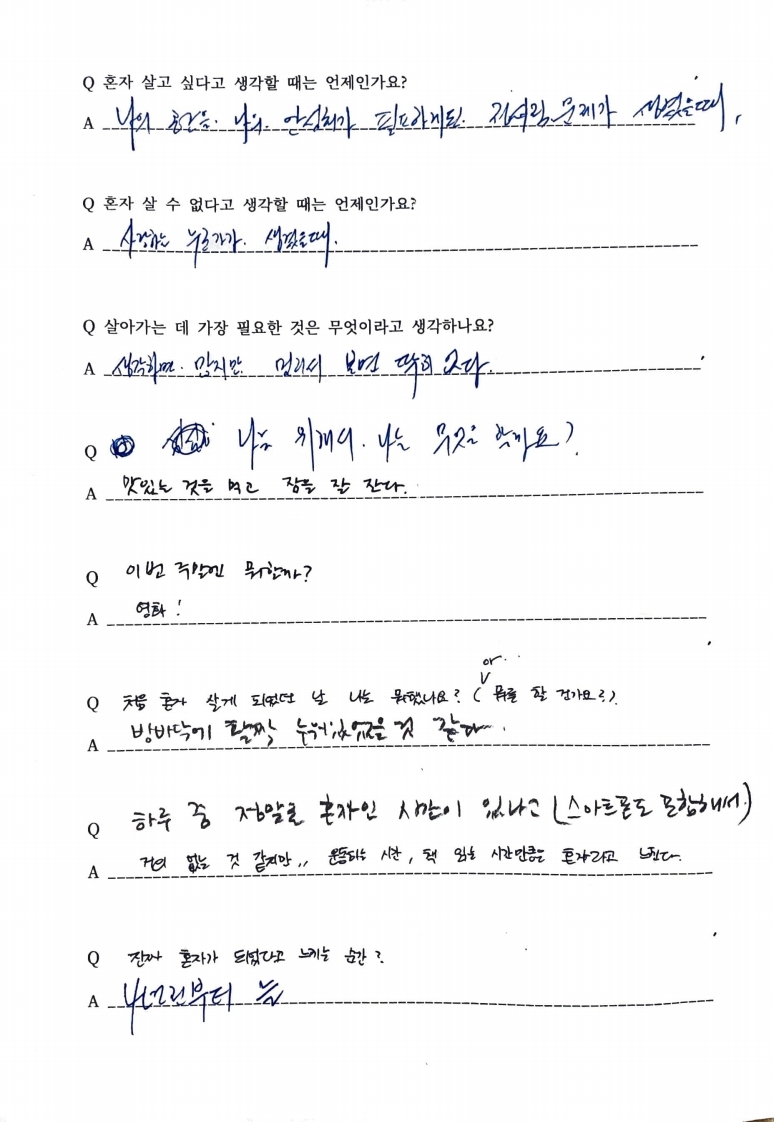 Q 혼자 살고 싶다고 생각할 때는 언제인가요?
A 나의 공간을. 나의. 안식처가 필요하게된. 문제가 생겼을때,
Q 혼자 살 수 없다고 생각할 때는 언제인가요?
A 사랑하는 누군가가. 생겼을때.
Q 살아가는 데 가장 필요한 것은 무엇이라고 생각하나요?
A 생각하면. 많지만. 멀리서 보면 딱히 없다.
Q 나를 위해서. 나는 무엇을 할까요?
A 맛있는 것을 먹고 잠을 잘 잔다.
Q 이번 주말엔 뭐할까?
A 영화!
or..
Q 처음 혼자 살게 되었던 날 나는 뭐했나요? ( 뭐를 할 건가요?).
A 방바닥에 활짝 누워있었을 것 같다.
Q 하루 중 정말로 혼자인 시간이 있나고 (스마트폰도 포함해서.)
A 거의 없는 것 같지만,, 운동하는 시간, 책 읽는 시간만큼은 혼자라고 느낀다.
Q 진짜 혼자가 되었다고 느끼는 순간?
A 늘